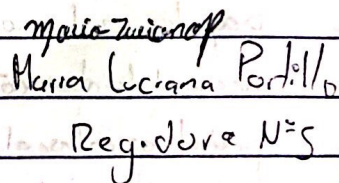 Maria Luciana P
Maria Luciana Portillo
Regidora N=5